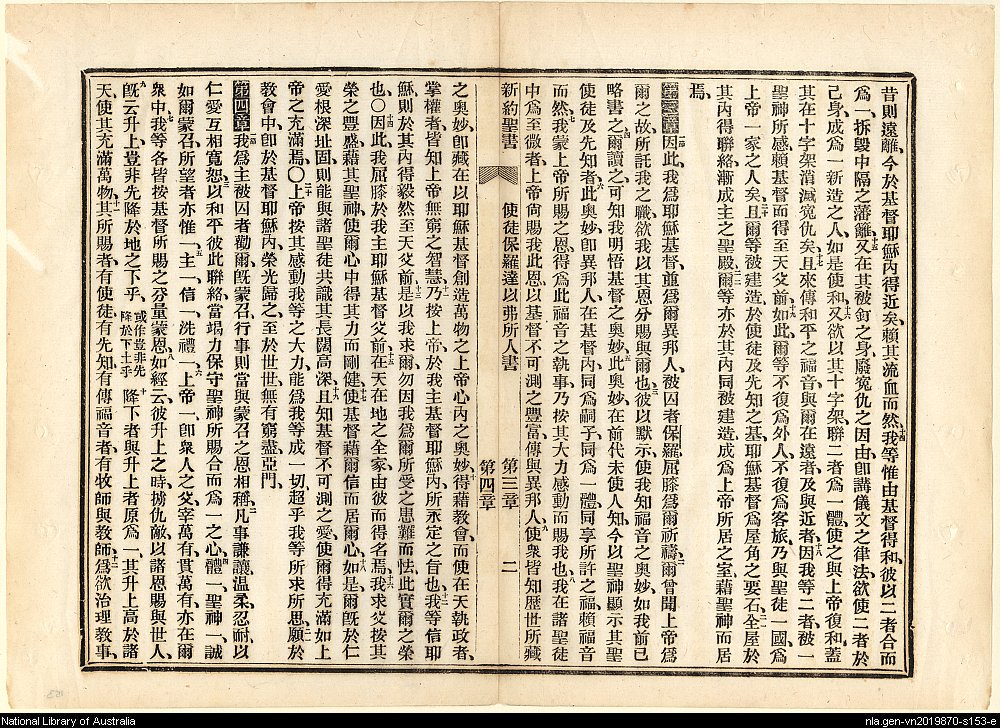 昔則遠離、今於基督耶穌內得近矣、賴其流血而然、十四我等惟由基督得和、彼以二者合而
為一、拆毀中隔之藩籬、十五又在其被釘之身、廢寃仇之因由、卽講儀文之律法、欲使二者於
己身成為一新造之人、如是使和、十六又欲以其十字架聯二者為一體、使之與上帝復和、蓋
其在十字架消滅寃仇矣、十七且來傳和平之福音、與爾在遠者、及與近者、十八因我等二者、被一
聖神所感、賴基督而得至天父前、十九如此、爾等不復為外人、不復為客旅、乃與聖徒一國、為
上帝一家之人矣、二十且爾等被建造、於使徒及先知之基、耶穌基督為屋角之要石、二一全屋於
其內得聯絡、漸成主之聖殿、二二爾等亦於其內同被建造、成為上帝所居之室、藉聖神而居
焉、
第三章一節因此我為耶穌基督、並為爾異邦人、被囚者保羅屈膝為爾祈禱、二爾曾聞上帝為
爾之故、所託我之職、欲我以其恩分賜與爾也、三彼以默示使我知福音之奧妙、如我前已
略書之、四爾讀之、可知我明悟基督之奧妙、五此奧妙在前代未使人知、今以聖神顯示其聖
使徒及先知者、六此奧妙卽異邦人在基督內、同為嗣子、同為一體、同享所許之福、賴福音
而然、七我蒙上帝所賜之恩、得為此福音之執事、乃按其大力感動而賜我也、八我在諸聖徒
中為至微者、上帝尙賜我此恩、以基督不可測之豐富、傳與異邦人、九使衆皆知歷世所藏
新約聖書 使徒保羅達以弗所人書 第三章 第四章 二
之奧妙、卽藏在以耶穌基督創造萬物之上帝心內之奧妙、十得藉教會、而使在天執政者、
掌權者、皆知上帝無窮之智慧、十一乃按上帝於我主基督耶穌內、所永定之旨也、十二我等信耶
穌、則於其內得毅然至天父前、十三是以我求爾勿因我為爾所受之患難而怯、此實爾之榮
也、〇十四因此我屈膝於我主耶穌基督父前、十五在天在地之全家、由彼而得名焉、十六我求父按其
榮之豐盛、藉其聖神、使爾心中得其力而剛健、十七使基督藉爾信而居爾心、如是爾旣於仁
愛根深址固、十八則能與諸聖徒共識其長闊高深、十九且知基督不可測之愛、使爾得充滿如上
帝之充滿焉、〇二十上帝按其感動我等之大力、能為我等成一切、超乎我等所求所思、二一願於
教會中、卽於基督耶穌內、榮光歸之、至於世世無有窮盡、亞門、
第四章一節我為主被囚者勸爾、旣蒙召、行事則當與蒙召之恩相稱、二凡事謙讓溫柔忍耐、以
仁愛互相寬恕、三以和平彼此聯絡、當竭力保守聖神所賜合而為一之心、四體一、聖神一、誠
如爾蒙召所望者亦惟一、五主一、信一、洗禮一、六上帝一、卽衆人之父、宰萬有、貫萬有、亦在爾
衆中、七我等各皆按基督所賜之分量蒙恩、八如經云、彼升上之時、擄仇敵、以諸恩賜與世人、
九旣云升上、豈非先降於地之下乎、或作豈非先降於下土乎十降下者、與升上者、原為一、其升上高於諸
天、使其充滿萬物、十一其所賜者、有使徒、有先知、有傳福音者、有牧師與教師、十二為欲治理教事、
National Library of Australia
nla.gen-vn2019870-s153-e